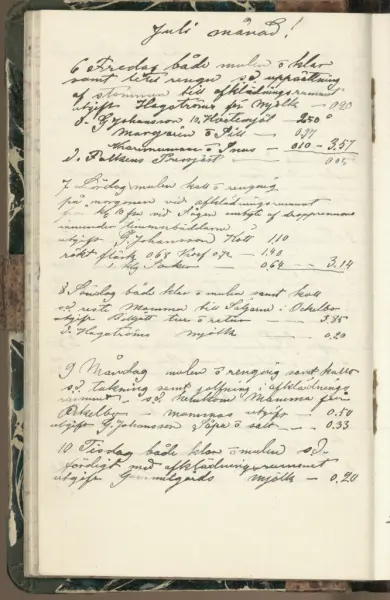 Juli månad!
6 Fredag både mulen o klar
samt litet regn så uppsättning
af stommen till afklädningsrummet
utgift Hagströms för Mjölk — 0.20
d. G Johansson 10 Hvetemjöl — 2.50
Margarin o Sill — 0.97
o Snus — 0.10 — 3.57
d. Falkens 0.05
7 Lördag mulen kall o regnig
på morgonen vid afklädningsrummet
kl 10 for vid Sågen
innunder
utgift G Johansson Kött 1.10
rökt fläsk 0.68 Korf 0.72 — 1.40
1 kg Socker — 0.64 — 3.14
8 Söndag både klar o mulen samt kall
så reste Mamma till i Ockelbo
utgift Biljett tur o retur — 3.35
d. Hagströms mjölk — 0.20
9 Måndag mulen o regnig samt kallt
så takning samt golfning i afklädnings
rummet så hemkom Mamma från
Ockelbo — mammas utgift — 0.50
utgift G. Johansson Såpa o salt — 0.33
10 Tisdag både klar o mulen s.d.
färdigt med afklädningsrummet
utgift Gammelgårds mjölk — 0.20